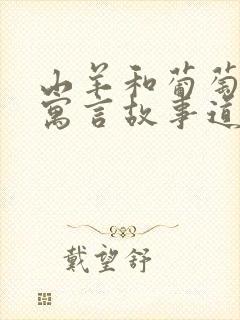 山羊和葡萄
寓言故事道
戴望舒